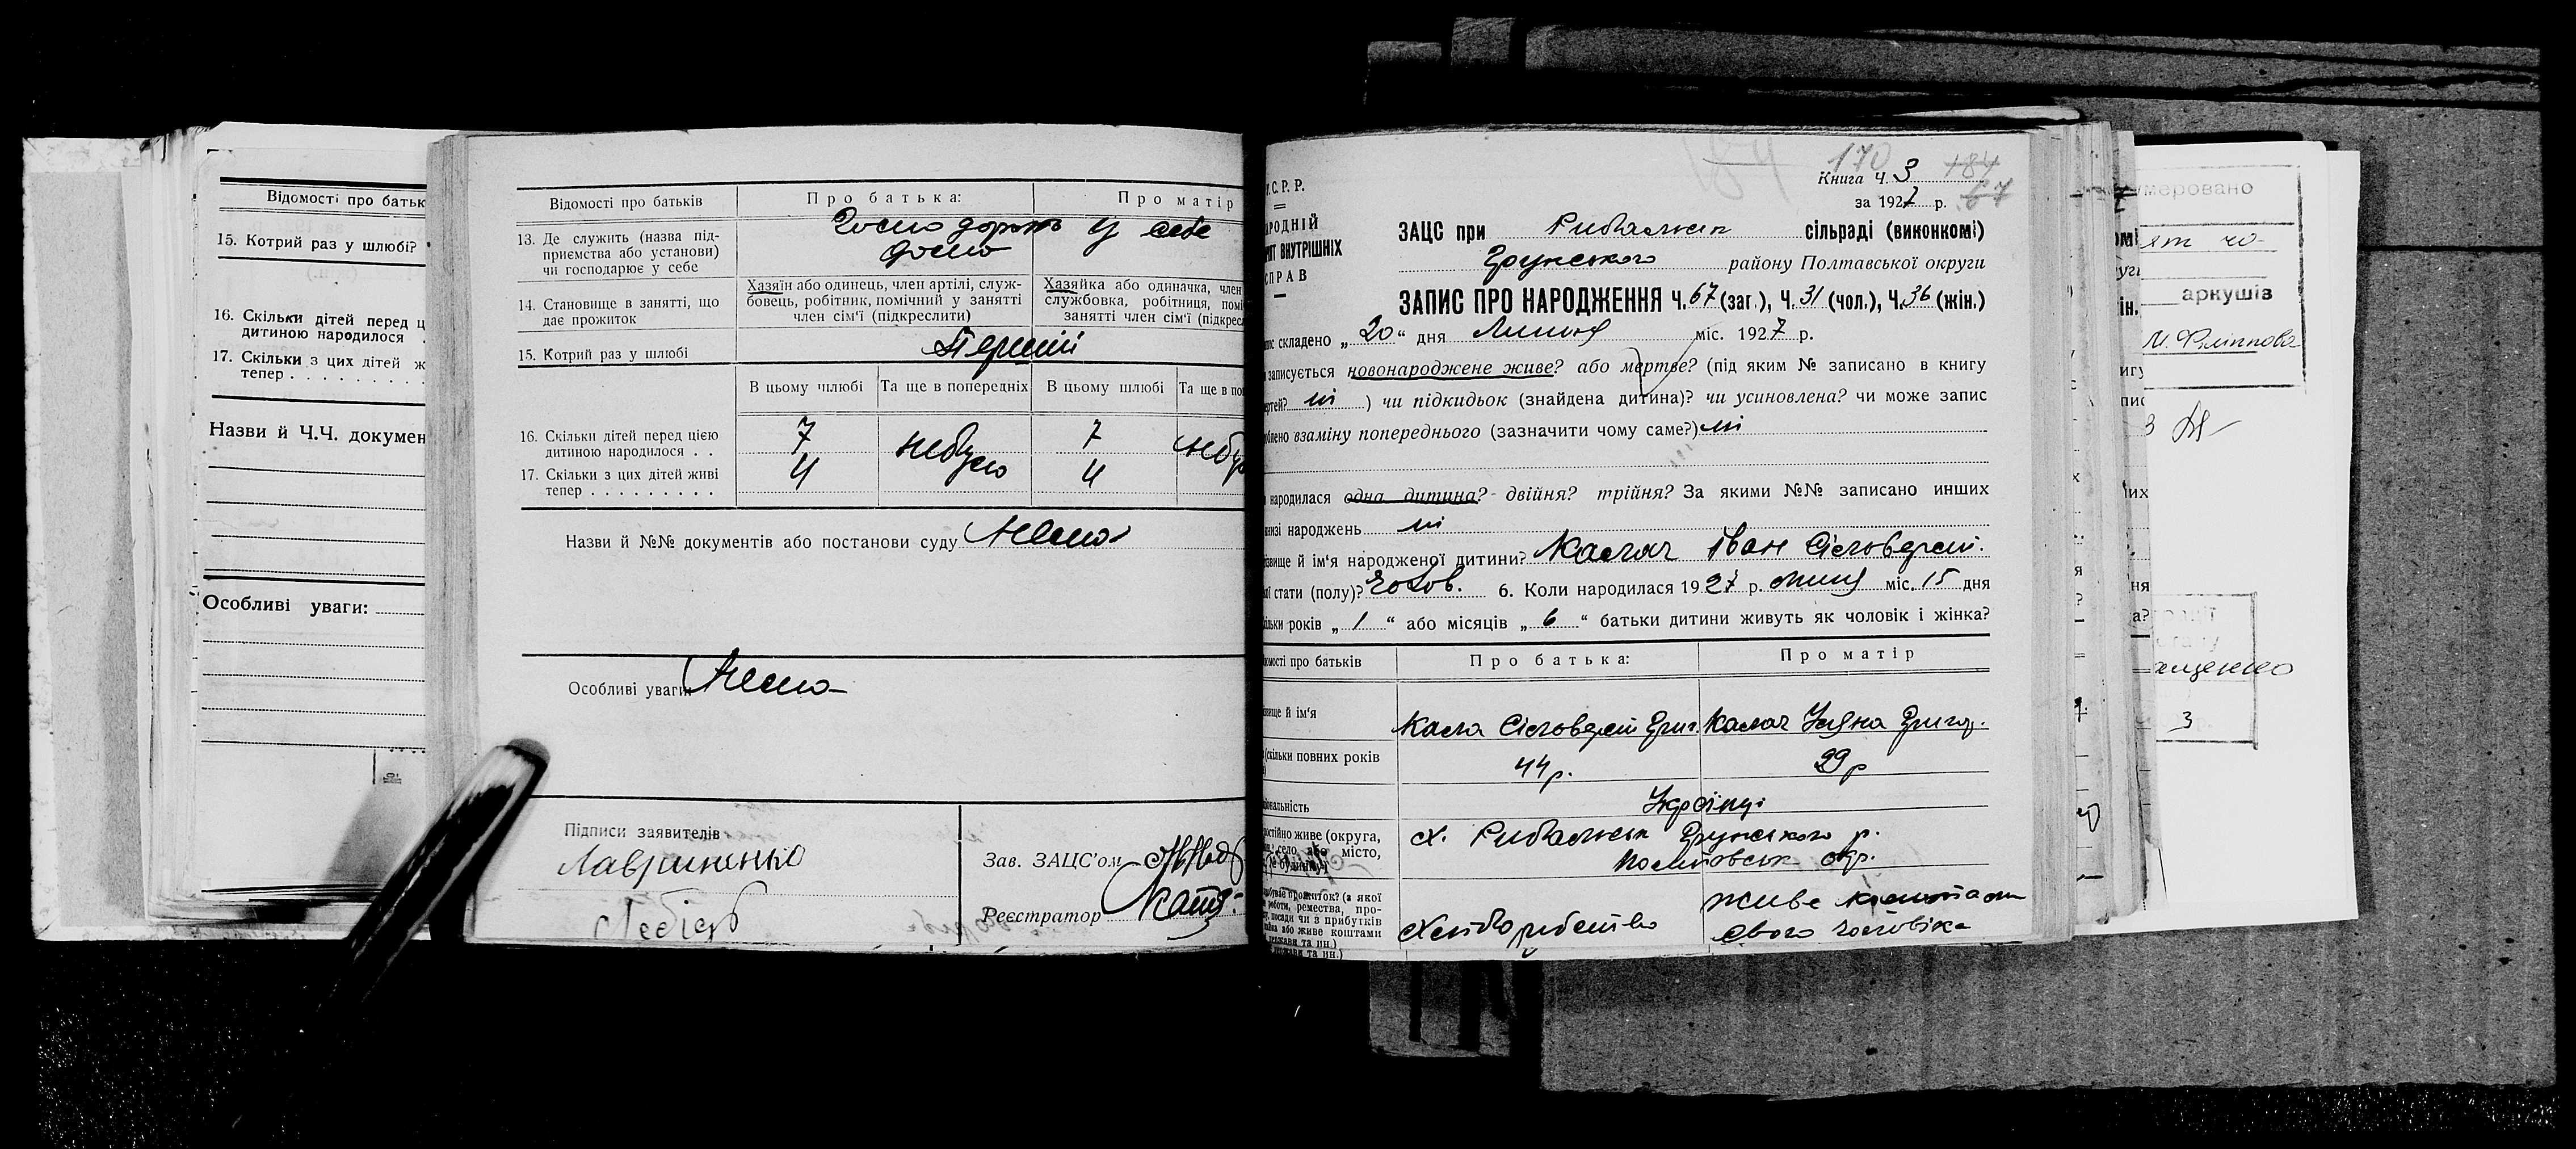 Відомості про батьк
15. Котрий раз у шлюбі?
16. Скільки дітей перед ц
дитиною народилося .
17. Скільки з цих дітей ж
тепер . . . . . . . . .
Назви й Ч.Ч. докумен
Особливі уваги:
Відомості про батьків
Про батька:
Про матір
13. Де служить (назва під-
приємства або установи)
чи господарює у себе
у себе
14. Становище в занятті, що
дає прожиток
Хазяїн або одинець, член артілі, служ-
бовець, робітник, помічний у занятті
член сім'ї (підкреслити)
Хазяйка або одиначка, член
службовка, робітниця, помі
занятті член сім'ї (підкресл
15. Котрий раз у шлюбі
Перший
В цьому шлюбі
Та ще в попередніх
В цьому шлюбі
Та ще в поп
16. Скільки дітей перед цією
дитиною народилося . .
7
небуло
7
небу
17. Скільки з цих дітей живі
тепер . . . . . . . . .
4
4
Назви й №№ документів або постанови суду Нема
Особливі уваги Нема
Підписи заявителів
Лавриненко
Зав. ЗАЦС'ом
Реєстратор
.С.Р.Р.
АРОДНІЙ
АРІЯТ ВНУТРІШНІХ
СПРАВ
170
184
67
Книга ч. 3
за 1927 р.
ЗАЦС при Рибальськ сільраді (виконкомі)
Грунського району Полтавської округи
ЗАПИС ПРО НАРОДЖЕННЯ Ч. 67 (заг.), Ч. 31 (чол.), Ч. 36 (жін.)
пис складено „20“ дня Липня міс. 1927 р.
записується новонароджене живе? або мертве? (під яким № записано в книгу
ертей? ні ) чи підкидьок (знайдена дитина)? чи усиновлена? чи може запис
облено взаміну попереднього (зазначити чому саме?) ні
народилася одна дитина? двійня? трійня? За якими №№ записано инших
книзі народжень ні
звище й ім'я народженої дитини? Калач Іван Сільверст.
ої стати (полу)? Чолов. 6. Коли народилася 1927 р. липня міс. 15 дня
кільки років „1“ або місяців „6“ батьки дитини живуть як чоловік і жінка?
домості про батьків
Про батька:
Про матір
звище й ім'я
Кала Сільверст Григ.
Калач Уляна Григор.
(скільки повних років
44 р.
29 р
іональність
Українці
постійно живе (округа,
село або місто,
№ будинку)
х. Рибальськ Грунського р.
Полтавськ окр.
добуває прожиток? (з якої
роботи, ремества, про-
посади чи з прибутків
або живе коштами
держави та ин.)
Хліборобство
живе коштами
свого чоловіка
умеровано
аркушів
3
3